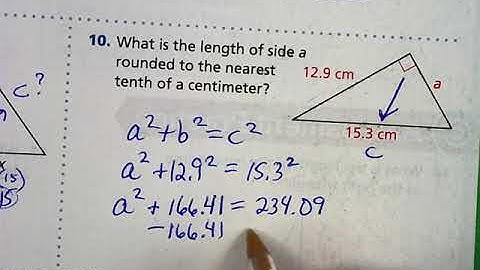 10. What is the length of side a
rounded to the nearest
tenth of a centimeter?
12.9 cm
a
15.3 cm
c
c?
15
15
a² + b² = c²
a² + 12.9² = 15.3²
a² + 166.41 = 234.09
-166.41